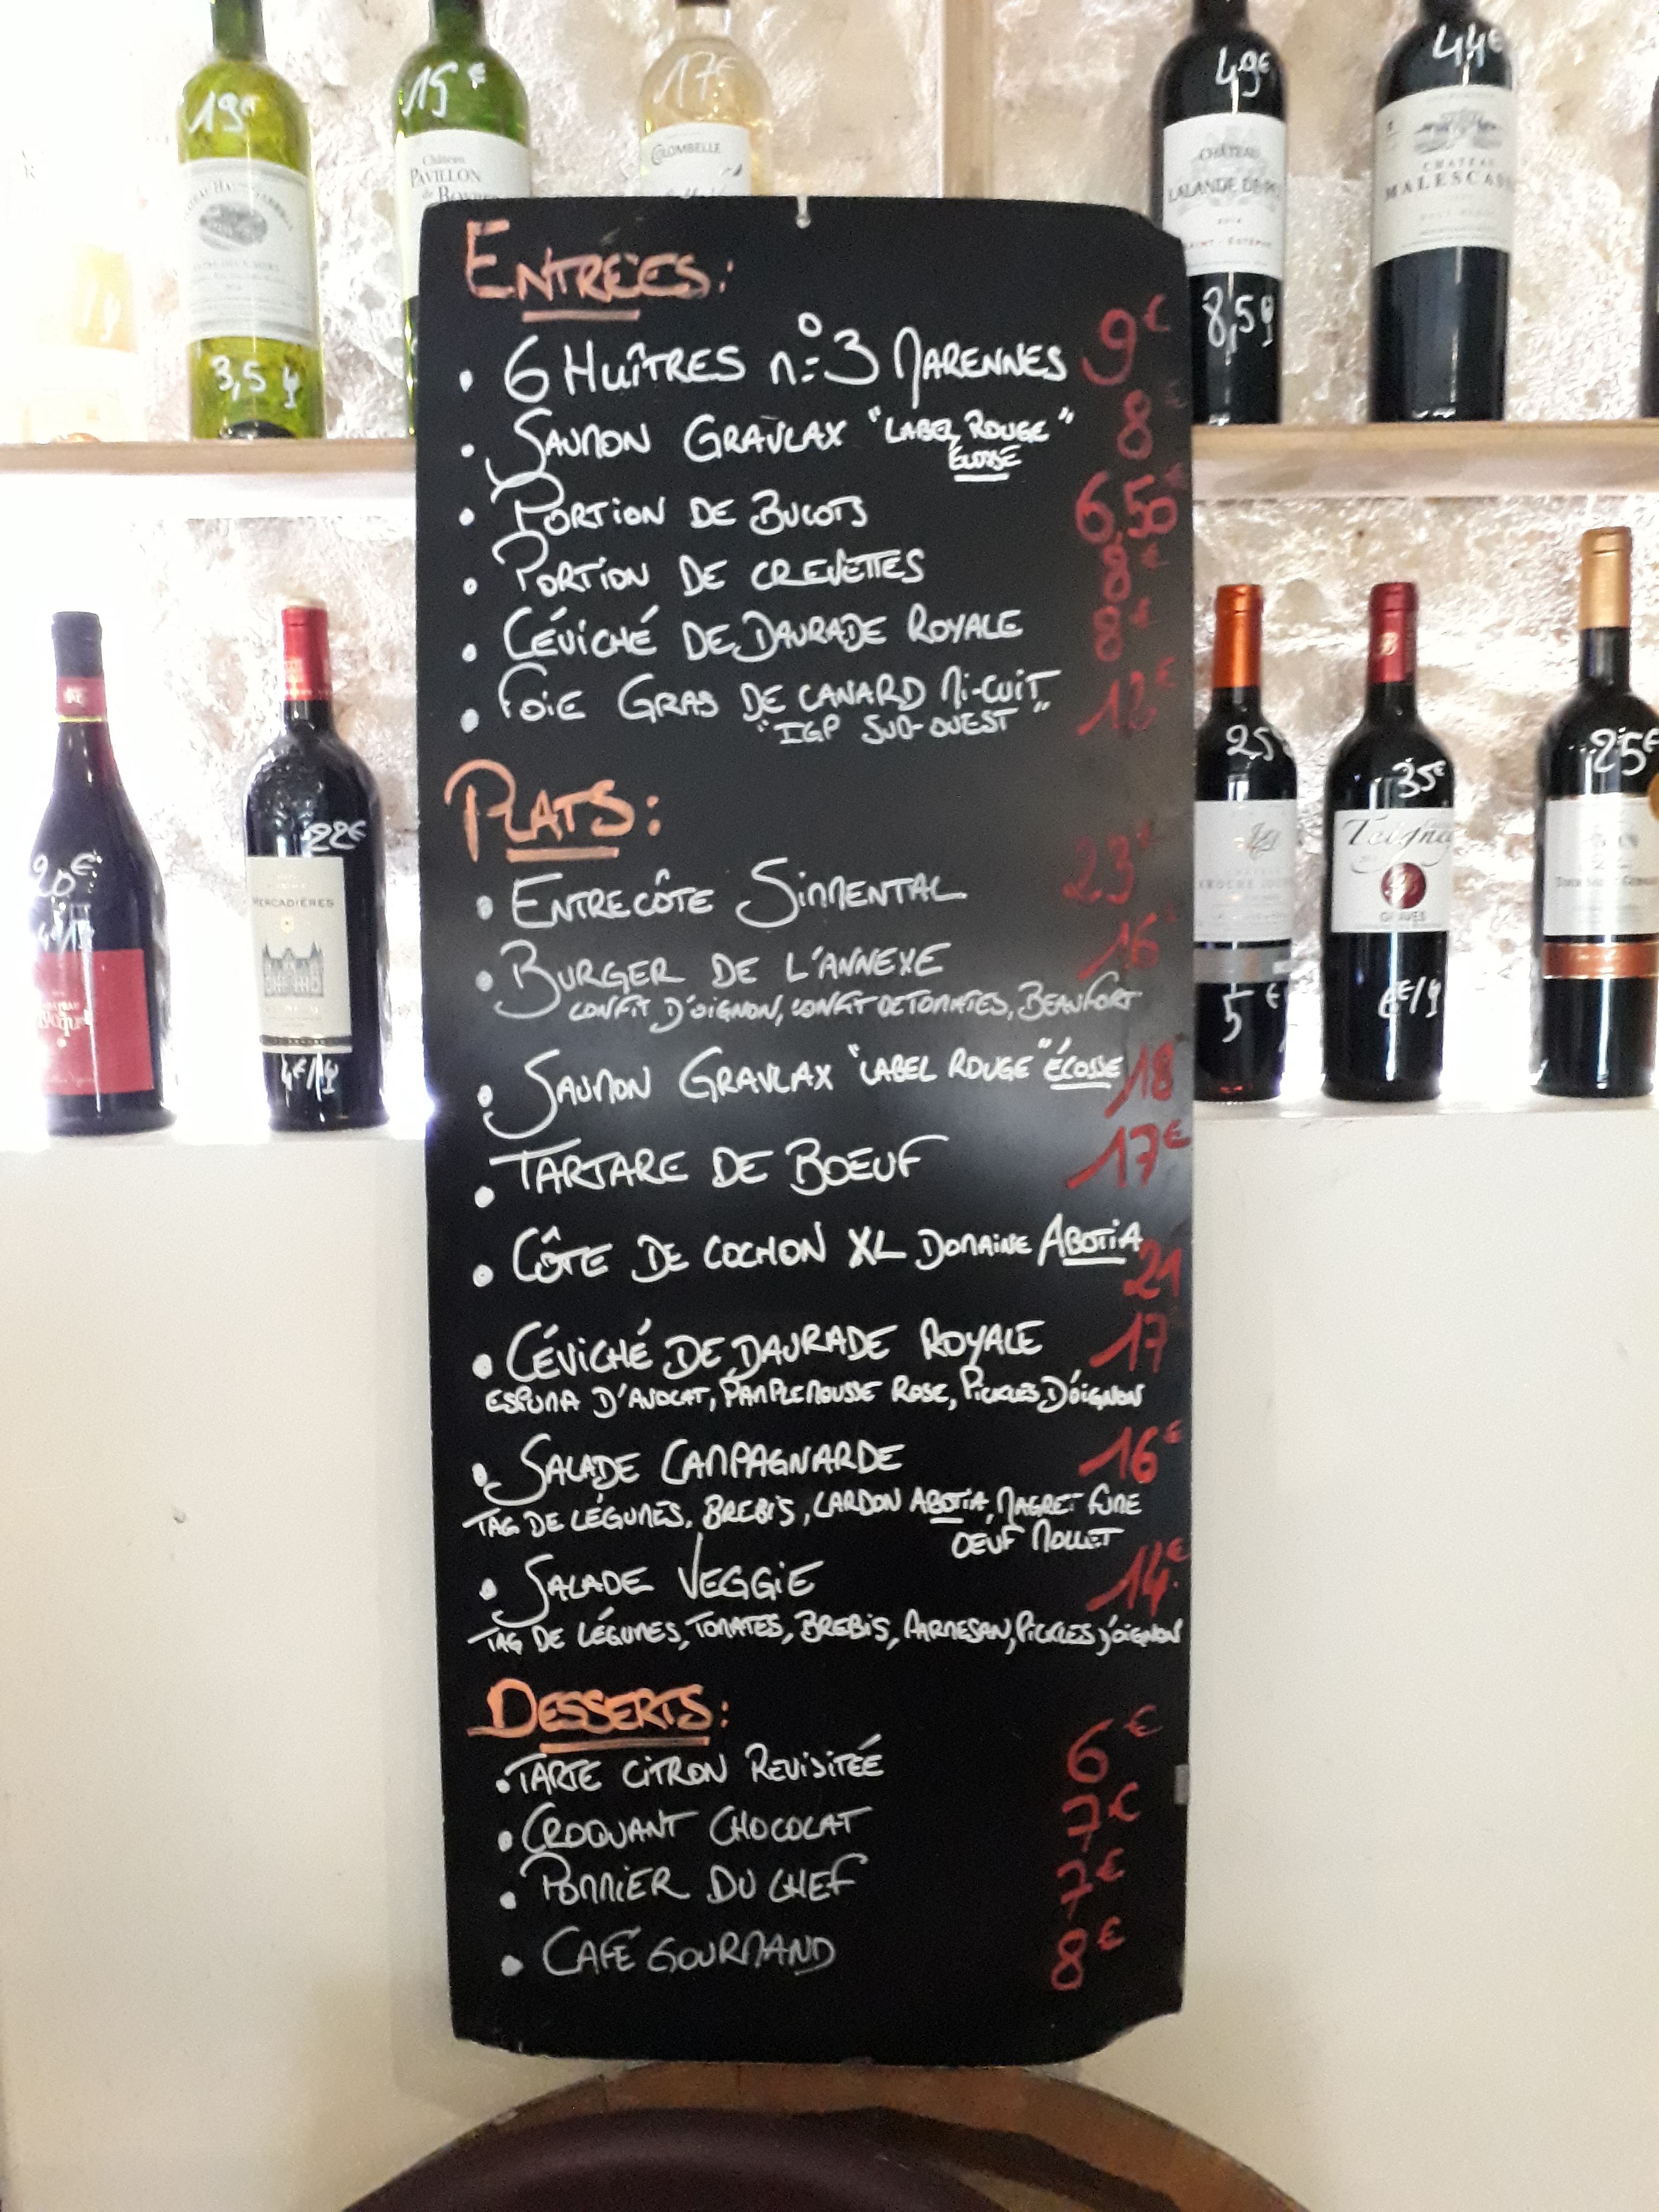 19€
15€
17€
49€
44€
Château
PAVILLON
de
COLOMBELLE
CHATEAU
LALANDE
SAINT-ESTÈPHE
CHATEAU
MALESCASSE
3,5
8,5
ENTRÉES:
• 6 HUÎTRES n:°3 MARENNES 9€
• SAUMON GRAVLAX "LABEL ROUGE" 8€
ÉCOSSE
• PORTION DE BULOTS 6,50€
• PORTION DE CREVETTES 8€
• CÉVICHÉ DE DAURADE ROYALE 8€
• FOIE GRAS DE CANARD MI-CUIT 12€
"IGP SUD-OUEST"
PLATS:
• ENTRECÔTE SIMMENTAL 23€
• BURGER DE L'ANNEXE 16€
CONFIT D'OIGNON, CONFIT DE TOMATES, BEAUFORT
• SAUMON GRAVLAX "LABEL ROUGE" ÉCOSSE 18
• TARTARE DE BOEUF 17€
• CÔTE DE COCHON XL DOMAINE ABOTIA
21
• CÉVICHÉ DE DAURADE ROYALE 17
ESPUMA D'AVOCAT, PAMPLEMOUSSE ROSE, PICKLES D'OIGNON
• SALADE CAMPAGNARDE 16€
TAG DE LÉGUMES, BREBIS, LARDON ABOTIA, MAGRET FUMÉ
OEUF MOLLET
• SALADE VEGGIE 14€
TAG DE LÉGUMES, TOMATES, BREBIS, PARMESAN, PICKLES D'OIGNON
DESSERTS:
• TARTE CITRON REVISITÉE 6€
• CROQUANT CHOCOLAT 7€
• POMMIER DU CHEF 7€
• CAFÉ GOURMAND 8€
20€
22€
MERCADIÈRES
4€/
25
35€
25€
GRAVES
5€
6€/